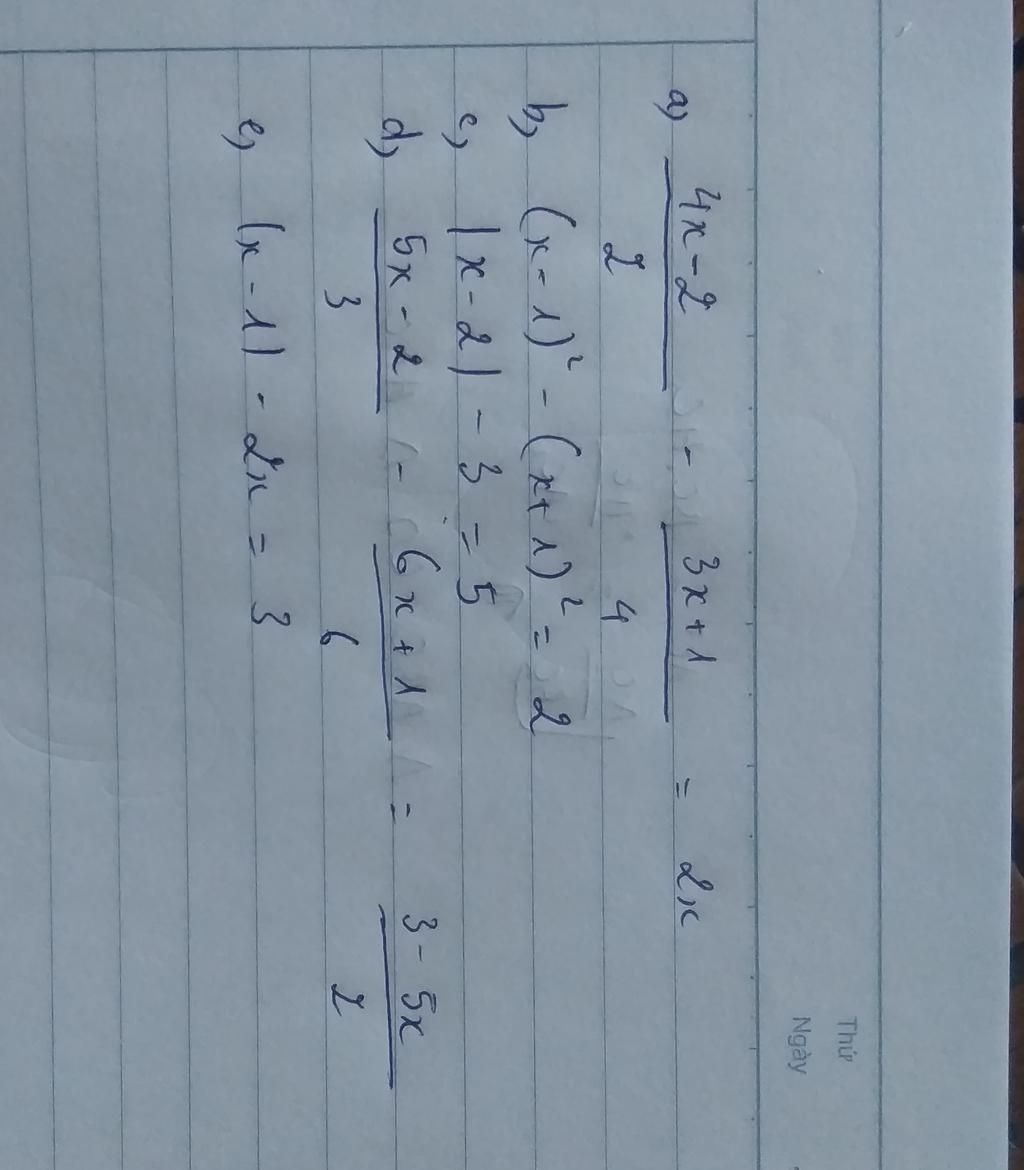 Thứ
Ngày
a, 4x-2 / 2 - 3x+1 / 4 = 2x
b, (x-1)² - (x+1)² = 2
c, |x-2| - 3 = 5
d, 5x-2 / 3 - 6x+1 / 6 = 3-5x / 2
e, |x-1| - 2x = 3